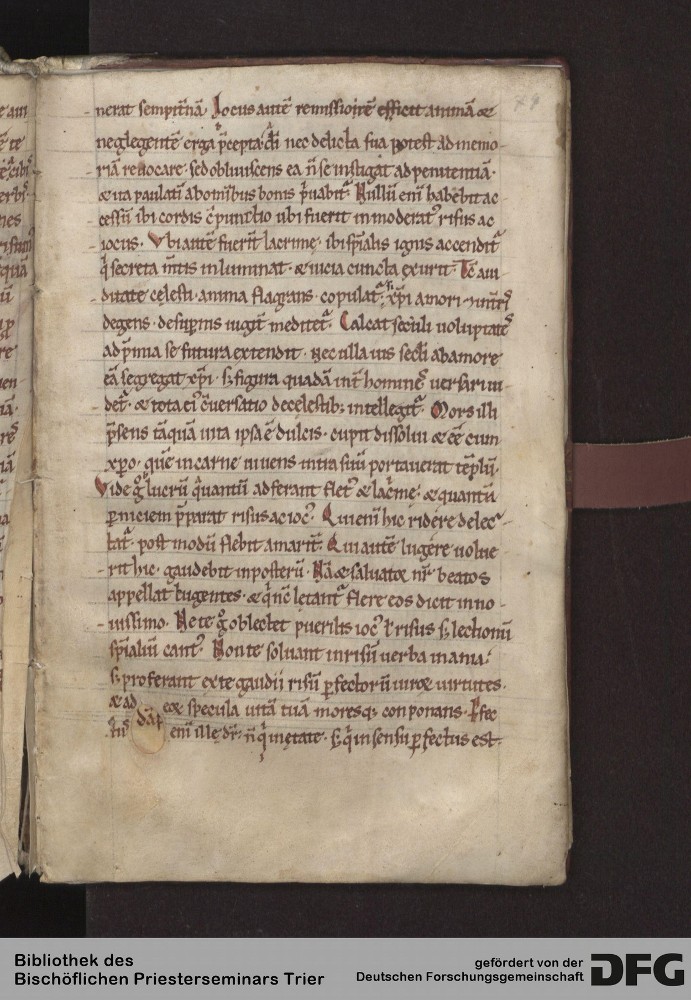 79
nerat sempit̄nā. Iocus autē remissiorē efficit animā &
neglegentē erga p̄cepta dī nec delicta sua potest ad memo-
riā reuocare. sed obliuiscens ea n̄ se instigat ad penitentiā.
& ita paulatī abom̄ibus bonis p̄uabit᷑. Nullū enī habebit ac
cessū ibi cordis c̄punctio ubi fuerit inmoderat᷒ risus ac
iocus. Vbi autē fuerīt lacrime. ibi sp̄ialis ignis accendit᷑
q̄ secreta m̄tis inluminat. & uicia cuncta exurit. Tc̄ aui
ditate cęlesti. anima flagrans. copulat᷑ xp̄i amori
degens. de sup̄nis iugit̄ meditet᷑. Calcat seculi uoluptatē
ad p̄mia se futura extendit. Nec ulla uis secl̄i ab amore
eā segregat xp̄i. s; figura quadā int̄ hominē uersari ui-
det᷑. & tota ei᷒ c̄uersatio de cęlestib; intellegit᷑. Mors illi
p̄sens tāquā uita ipsa ē dulcis. cupit dissolui & cē̄ cum
xp̄o. quē in carne uiuens intra suū portauerat tēplū.
Vide g̊ lucrū q̄antū adferant flet᷒ & lac̄me. & quantū
p̱niciem p̄parat risus ac ioc᷒. Qui enī hic ridere delec-
tat᷑. post modū flebit amarit̄. Qui autē lugere uolue
rit hic. gaudebit in posterū. Nā & saluator nr̄ beatos
appellat lugentes. & q̄ nc̄ lętant᷑ flere eos dicit in no-
uissimo. Ne te g̊ oblectet puerilis ioc᷒ ł risus s; lectionū
sp̄ialiū cant᷒. Non te soluant in risū uerba inania.
s; proferant ex te gaudii risū p̱fectorū uirorꝝ uirtutes.
& ad eoꝝ specula uitā tuā moresq; conponans. P̱fec
t᷒ enī ille dr̄. n̄ q̄ in ętate. s; q̄ in sensu p̱fectus est.
Bibliothek des
Bischöflichen Priesterseminars Trier
gefördert von der
Deutschen Forschungsgemeinschaft
DFG